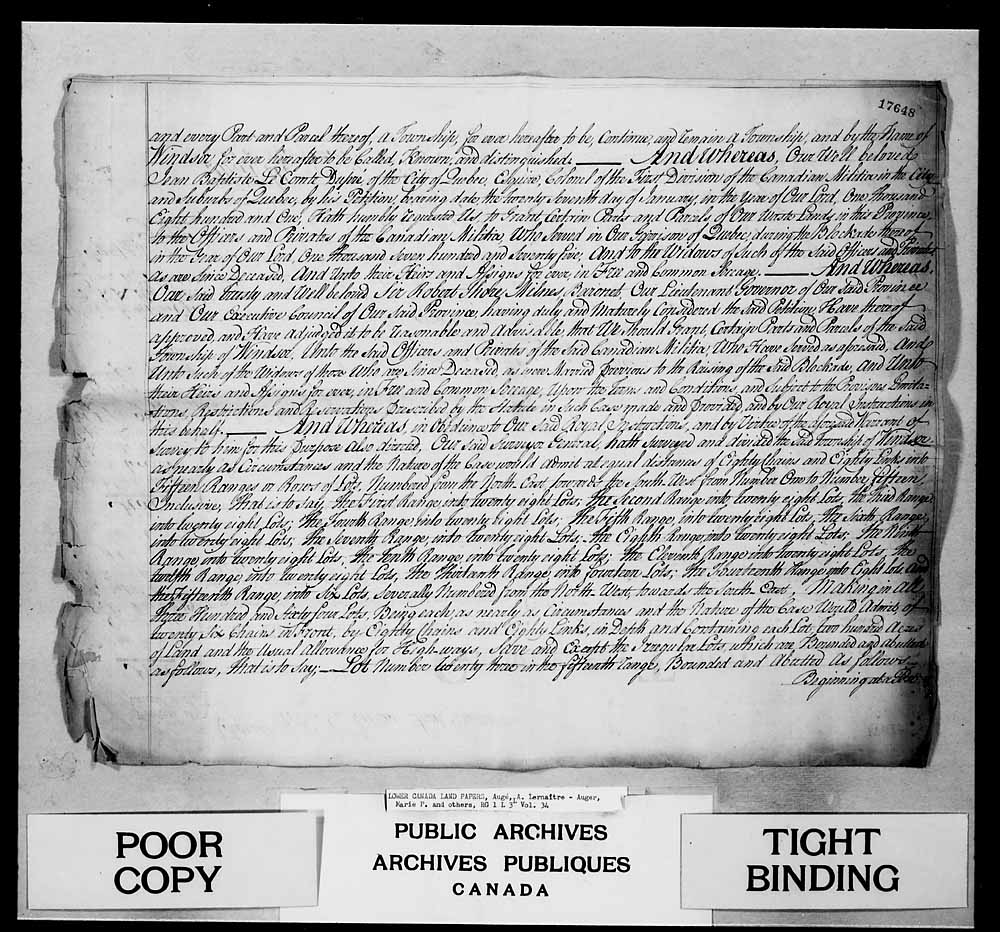 17648
and every Part and Parcel thereof, a Township, for ever hereafter to be, Continue, and Remain a Township, and by the Name of
Windsor, for ever hereafter to be Called, Known, and distinguished. And Whereas, Our Well beloved
Jean Baptiste Le Comte Dupré, of the City of Quebec, Esquire, Colonel of the First Division of the Canadian Militia in the City
and Suburbs of Quebec, by his Petition, bearing date, the twenty Seventh day of January, in the Year of Our Lord, One thousand
Eight hundred and One, Hath humbly requested Us, to Grant Certain Parts and Parcels of Our Waste Lands, in this Province,
to the Officers and Privates of the Canadian Militia, Who Served in Our Garrison of Quebec, during the Blockade thereof
in the Year of Our Lord, One thousand Seven hundred and Seventy five, And to the Widows of Such of the Said Officers and Privates
as are Since Deceased, And Unto their Heirs and Assigns for ever, in Free and Common Soccage. And Whereas,
Our Said trusty and Well beloved Sir Robert Shore Milnes, Baronet, Our Lieutenant Governor of Our Said Province
and Our Executive Council of Our Said Province, having duly and Maturely Considered the Said Petition, Have thereof
approved, and Have Adjudged it to be Reasonable and Advisable that We Should Grant Certain Parts and Parcels of the Said
Township of Windsor, Unto the Said Officers and Privates of the Said Canadian Militia, Who Have Served as aforesaid, And
Unto Such of the Widows of those Who are Since Deceased, as were Married previous to the Raising of the Said Blockade, And Unto
their Heirs and Assigns for ever, in Free and Common Soccage, Upon the Terms and Conditions, and Subject to the Provisions, Limita-
tions, Restrictions and Reservations Prescribed by the Statute in Such Case made and Provided, and by Our Royal Instructions in
this behalf. And Whereas, in Obedience to Our Said Royal Instructions, and by Virtue of the aforesaid Warrant of
Survey to him for this Purpose Also directed, Our Said Surveyor General, hath Surveyed and divided the Said Township of Windsor
as nearly as Circumstances and the Nature of the Case would Admit at equal distances of Eighty Chains and Eighty Links into
Fifteen Ranges or Rows of Lots, Numbered from the North East towards the South West from Number One to Number fifteen
Inclusive, That is to Say, the First Range into twenty eight Lots; the Second Range into twenty eight Lots, the third Range
into twenty eight Lots; the Fourth Range into twenty eight Lots; the Fifth Range, into twenty eight Lots, the Sixth Range,
into twenty eight Lots, the Seventh Range, into twenty eight Lots, the Eighth Range, into twenty eight Lots; the Ninth
Range, into twenty eight Lots, the tenth Range, into twenty eight Lots; the Eleventh Range into twenty eight Lots, the
twelfth Range, into twenty eight Lots, the thirteenth Range, into fourteen Lots; the Fourteenth Range, into Eight Lots and
the fifteenth Range, into Six Lots, Severally Numbered from the North West, towards the South East, Making in All,
three Hundred and Sixty four Lots, Being each, as nearly as Circumstances and the Nature of the Case Would Admit, of
twenty Six Chains in Front, by Eighty Chains and Eighty Links, in Depth, and Containing each Lot, two hundred Acres
of Land and the Usual Allowance for Highways, Save and Except the Irregular Lots, which are Bounded and abutted
as follows, that is to Say; Lot Number twenty three in the fifteenth range, Bounded and Abutted As follows
Beginning at a
LOWER CANADA LAND PAPERS, Augé, A. Lemaître - Auger,
Marie P. and others, RG 1 L 3 Vol. 34
POOR
COPY
PUBLIC ARCHIVES
ARCHIVES PUBLIQUES
CANADA
TIGHT
BINDING